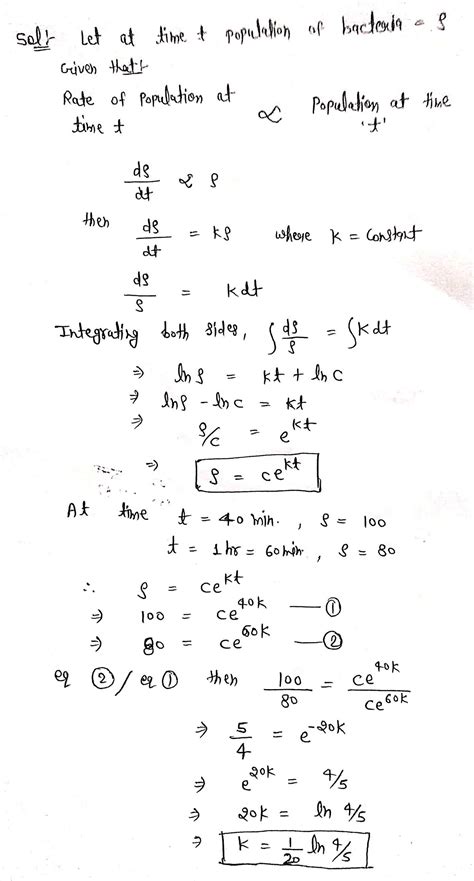 Sol:- Let at time t population of bacteria = ρ
Given that:-
Rate of Population at time t ∝ Population at time 't'
dρ/dt ∝ ρ
then dρ/dt = kρ where k = Constant
dρ/ρ = kdt
Integrating both sides, ∫ dρ/ρ = ∫ kdt
⇒ ln ρ = kt + ln C
⇒ ln ρ - ln c = kt
⇒ ρ/c = e^kt
⇒ ρ = ce^kt
At time t = 40 min. , ρ = 100
t = 1 hr = 60 min , ρ = 80
∴ ρ = ce^kt
⇒ 100 = ce^40k —— ①
⇒ 80 = ce^60k —— ②
eq ② / eq ① then 100/80 = ce^40k / ce^60k
⇒ 5/4 = e^-20k
⇒ e^20k = 4/5
⇒ 20k = ln 4/5
⇒ k = 1/20 ln 4/5